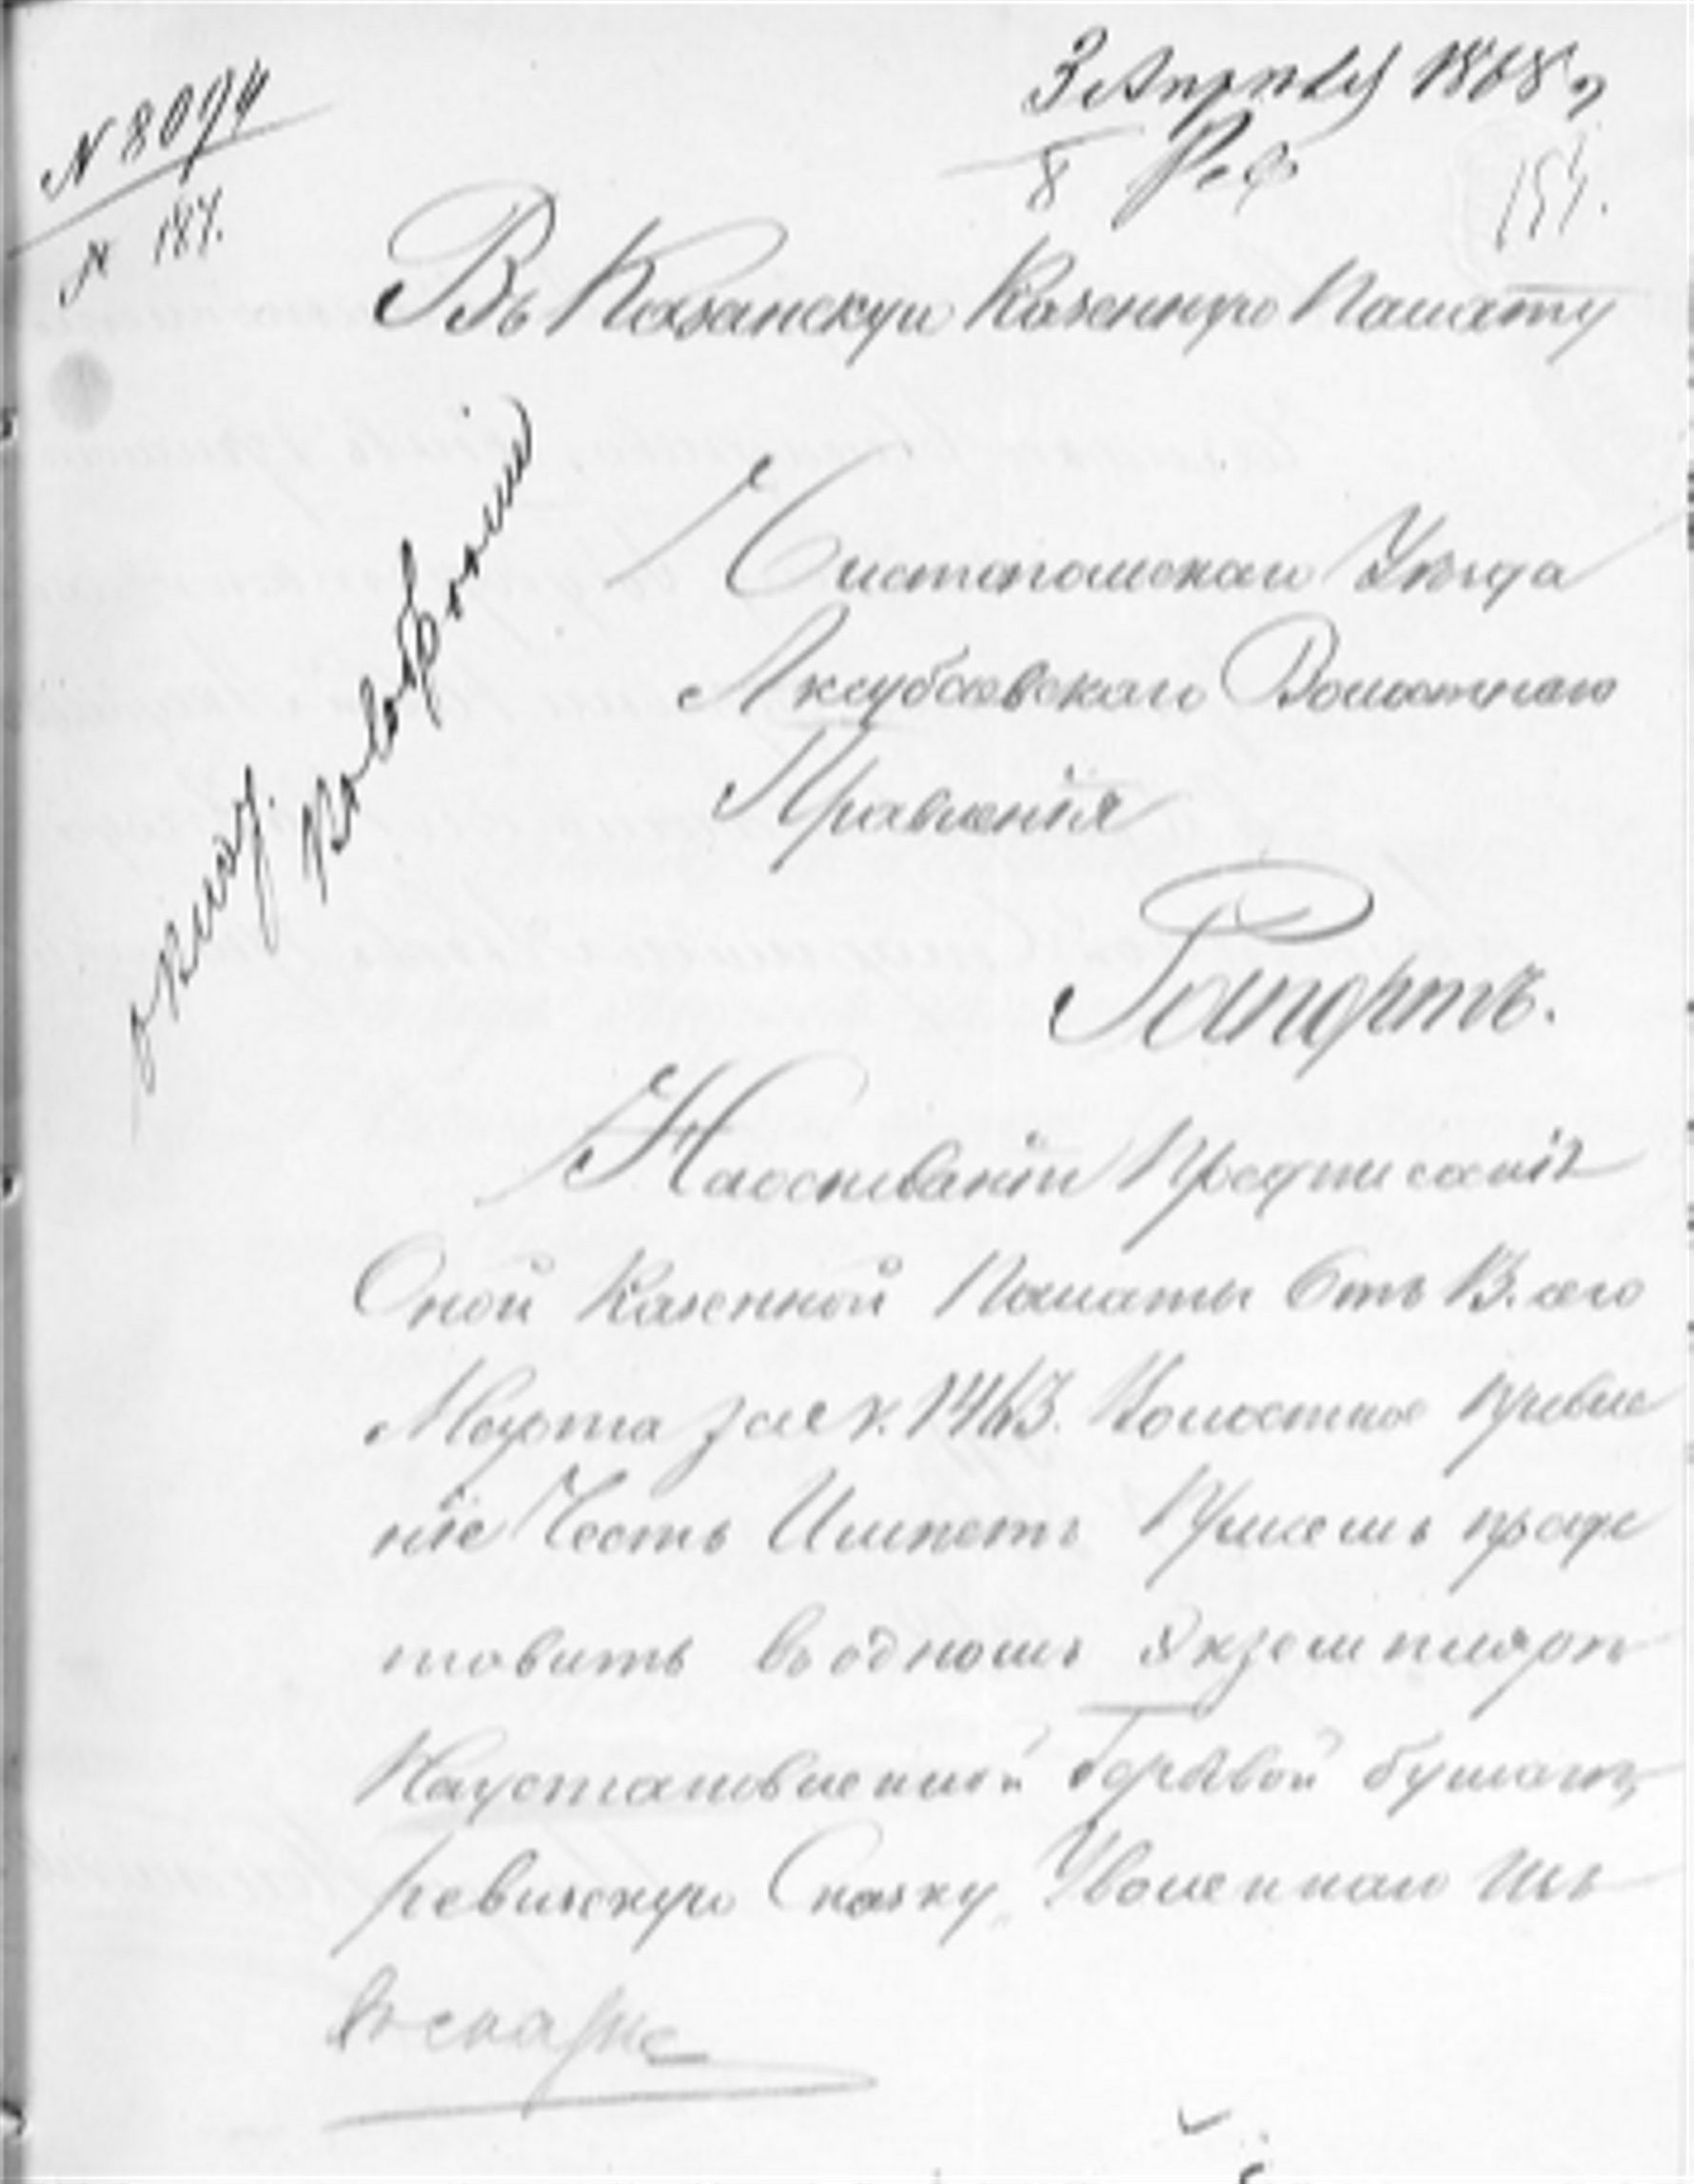 3 Апрѣля 1868 г.
N 8094
8 Рев
N 187.
Въ Казанскую Казенную Палату
Чистопольскаго Уѣзда
Аксубаевскаго Волостнаго
Правленія
Рапортъ.
Наоснованіи Предписанія
Оной Казенной Палаты Отъ 13. сего
Марта за N. 1463. Волостное Правле
ніе Честь Имѣетъ При семъ предс
тавить въ одномъ Экземплярѣ
Наустановленной Гербовой бумагѣ,
ревизскую Сказку, Уволеннаго Изъ